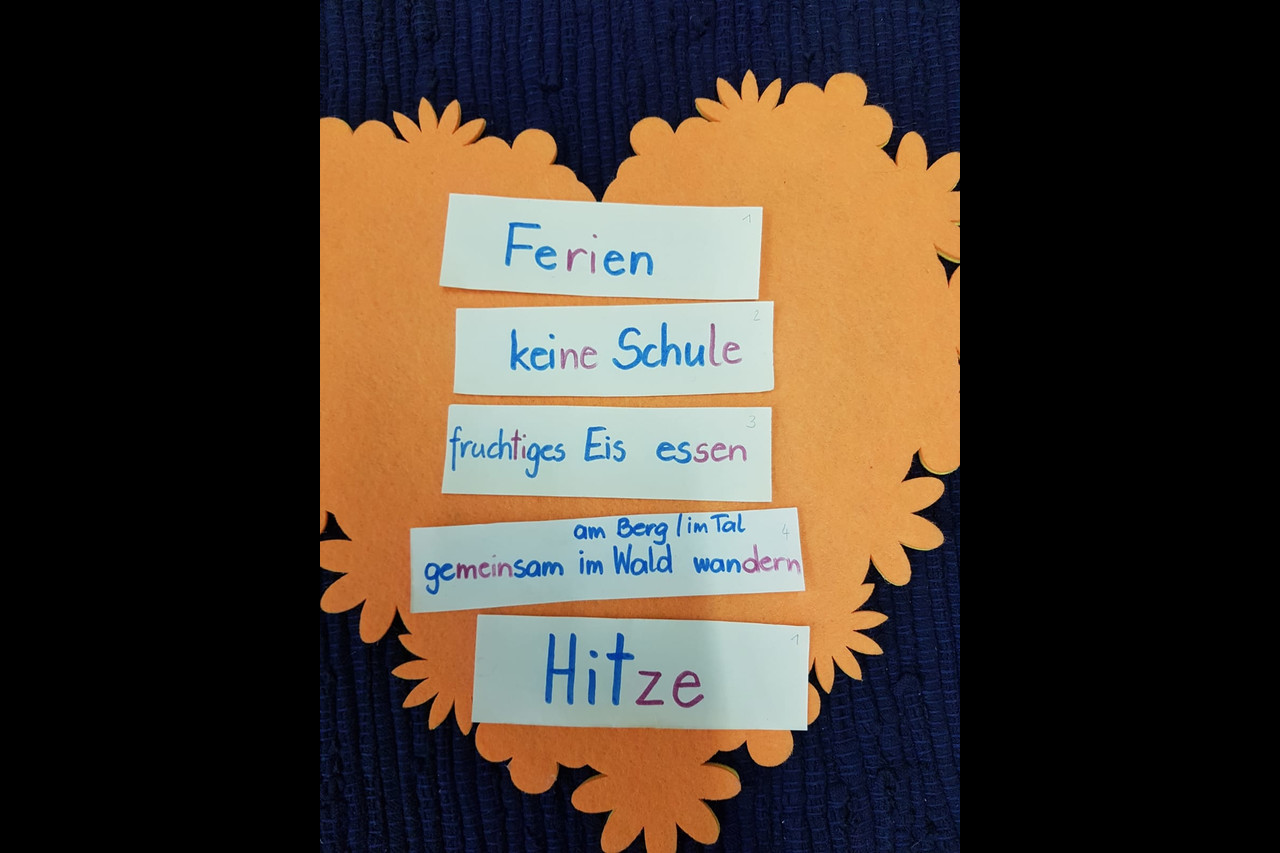 1
Ferien
2
keine Schule
3
fruchtiges Eis essen
am Berg / im Tal 4
gemeinsam im Wald wandern
1
Hitze